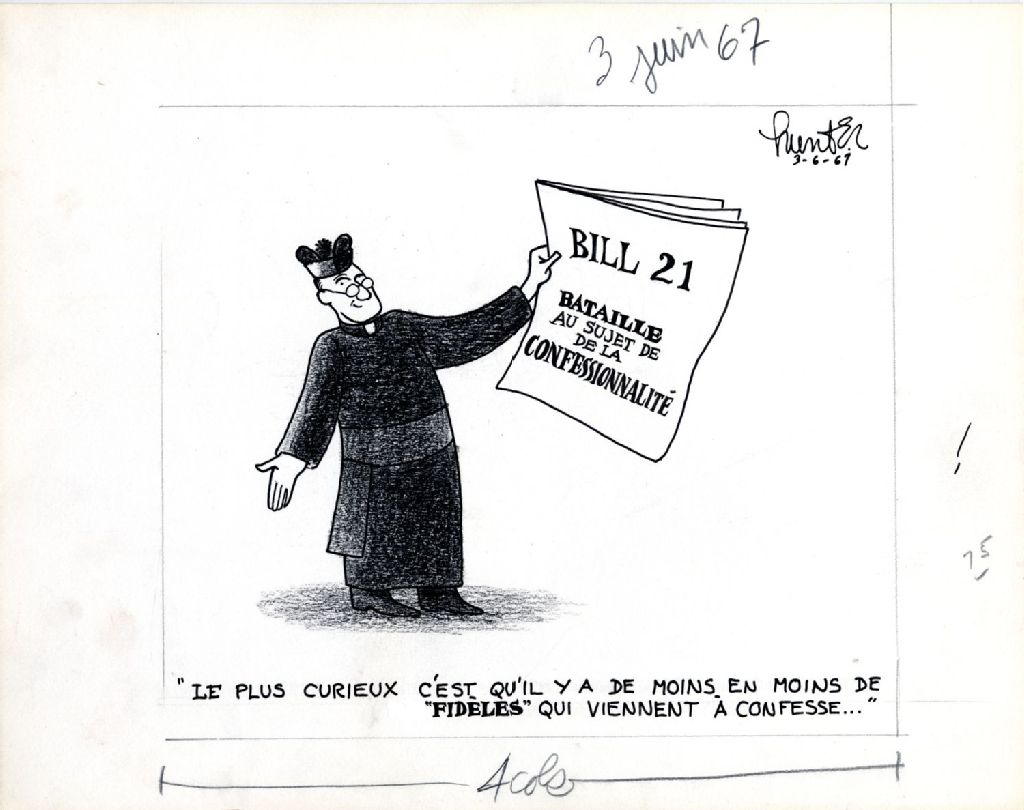 3 juin 67
HuntEr
3-6-67
BILL 21
BATAILLE
AU SUJET DE
DE LA
CONFESSIONNALITÉ
!
75
"LE PLUS CURIEUX C'EST QU'IL Y A DE MOINS EN MOINS DE
"FIDÈLES" QUI VIENNENT À CONFESSE..."
4 cols